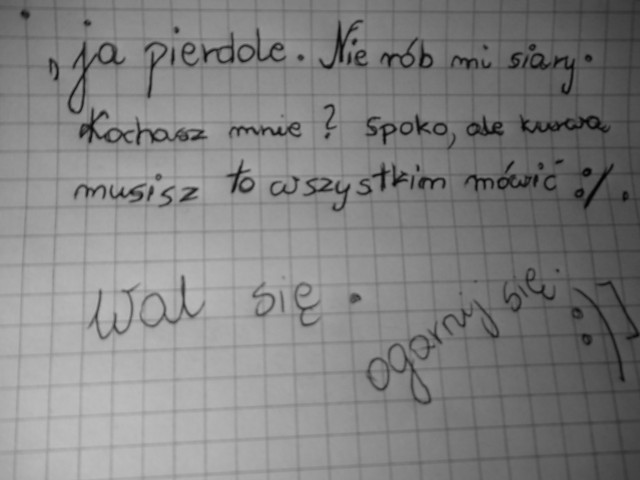 „ja pierdole. Nie rób mi siary.
Kochasz mnie? Spoko, ale kurwa
musisz to wszystkim mówić :/.
Wal się.
ogarnij się. :)]